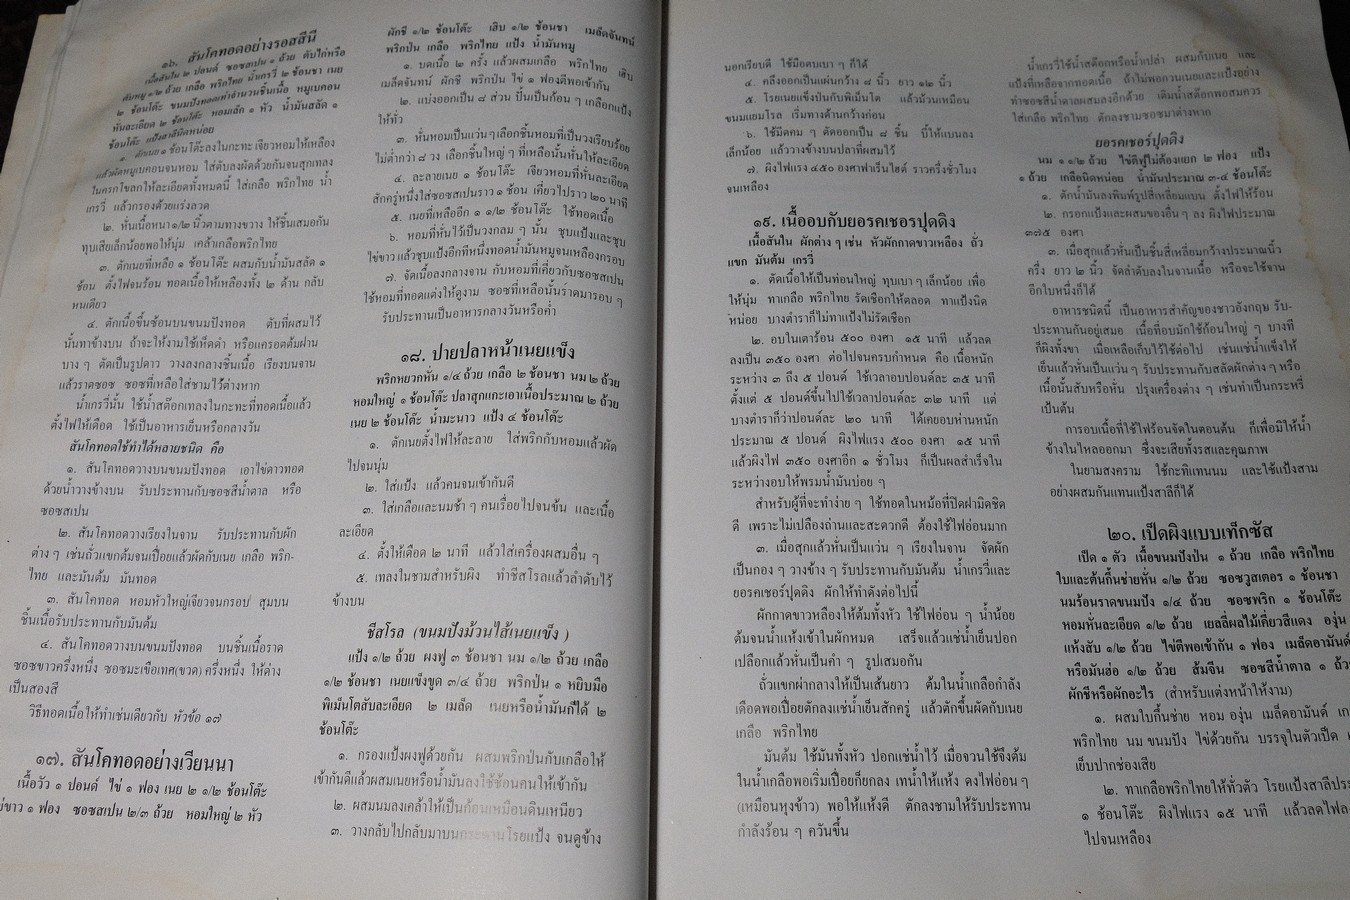 ๑๖. สันโคทอดอย่างรอสสีนี
เนื้อสันใน ๒ ปอนด์ ซอสสเปน ๑ ถ้วย ตับไก่หรือ
ตับหมู ๑/๒ ถ้วย เกลือ พริกไทย น้ำเกรวี่ ๒ ช้อนชา เนย
๒ ช้อนโต๊ะ ขนมปังทอดเท่าจำนวนชิ้นเนื้อ หมูเบคอน
หั่นละเอียด ๒ ช้อนโต๊ะ หอมเล็ก ๑ หัว น้ำมันสลัด ๑
ช้อนโต๊ะ แป้งสาลีนิดหน่อย
๑. ตักเนย ๑ ช้อนโต๊ะลงในกะทะ เจียวหอมให้เหลือง
แล้วผัดหมูเบคอนจนหอม ใส่ตับลงผัดด้วยกันจนสุกเทลง
ในครกโขลกให้ละเอียดทั้งหมดนี้ ใส่เกลือ พริกไทย น้ำ
เกรวี่ แล้วกรองด้วยแร่งลวด
๒. หั่นเนื้อหนา ๑/๒ นิ้วตามทางขวาง ให้ชิ้นเสมอกัน
ทุบเสียเล็กน้อยพอให้นุ่ม เคล้าเกลือพริกไทย
๓. ตักเนยที่เหลือ ๑ ช้อนโต๊ะ ผสมกับน้ำมันสลัด ๑
ช้อน ตั้งไฟจนร้อน ทอดเนื้อให้เหลืองทั้ง ๒ ด้าน กลับ
หนเดียว
๔. ตักเนื้อขึ้นซ้อนบนขนมปังทอด ตับที่ผสมไว้
นั้นทาข้างบน ถ้าจะให้งามใช้เห็ดดำ หรือแครอตต้มฝาน
บาง ๆ ตัดเป็นรูปดาว วางลงกลางชิ้นเนื้อ เรียงบนจาน
แล้วราดซอซ ซอซที่เหลือใส่ชามไว้ต่างหาก
น้ำเกรวี่นั้น ใช้น้ำสต๊อกเทลงในกะทะที่ทอดเนื้อแล้ว
ตั้งไฟให้เดือด ใช้เป็นอาหารเย็นหรือกลางวัน
สันโคทอดใช้ทำได้หลายชนิด คือ
๑. สันโคทอดวางบนขนมปังทอด เอาไข่ดาวทอด
ด้วยน้ำวางข้างบน รับประทานกับซอซสีน้ำตาล หรือ
ซอซสเปน
๒. สันโคทอดวางเรียงในจาน รับประทานกับผัก
ต่าง ๆ เช่นถั่วแขกต้มจนเปื่อยแล้วผัดกับเนย เกลือ พริก-
ไทย และมันต้ม มันทอด
๓. สันโคทอด หอมหัวใหญ่เจียวจนกรอบ สุมบน
ชิ้นเนื้อรับประทานกับมันต้ม
๔. สันโคทอดวางบนขนมปังทอด บนชิ้นเนื้อราด
ซอซขาวครึ่งหนึ่ง ซอซมะเขือเทศ(ขวด) ครึ่งหนึ่ง ให้ต่าง
เป็นสองสี
วิธีทอดเนื้อให้ทำเช่นเดียวกับ หัวข้อ ๑๗
๑๗. สันโคทอดอย่างเวียนนา
เนื้อวัว ๑ ปอนด์ ไข่ ๑ ฟอง เนย ๒ ๑/๒ ช้อนโต๊ะ
ไข่ขาว ๑ ฟอง ซอซสเปน ๒/๓ ถ้วย หอมใหญ่ ๒ หัว
ผักชี ๑/๒ ช้อนโต๊ะ เฮิบ ๑/๒ ช้อนชา เมล็ดจันทน์
พริกป่น เกลือ พริกไทย แป้ง น้ำมันหมู
๑. บดเนื้อ ๒ ครั้ง แล้วผสมเกลือ พริกไทย เฮิบ
เมล็ดจันทน์ ผักชี พริกป่น ไข่ ๑ ฟองตีพอเข้ากัน
๒. แบ่งออกเป็น ๘ ส่วน ปั้นเป็นก้อน ๆ เกลือกแป้ง
ให้ทั่ว
๓. หั่นหอมเป็นแว่นๆเลือกชิ้นหอมที่เป็นวงเรียบร้อย
ไม่ต่ำกว่า ๘ วง เลือกชิ้นใหญ่ ๆ ที่เหลือนั้นหั่นให้ละเอียด
๔. ละลายเนย ๑ ช้อนโต๊ะ เจียวหอมที่หั่นละเอียด
สักครู่หนึ่งใส่ซอซสเปนราว ๑ ช้อน เคี่ยวไปราว ๒๐ นาที
๕. เนยที่เหลืออีก ๑ ๑/๒ ช้อนโต๊ะ ใช้ทอดเนื้อ
๖. หอมที่หั่นไว้เป็นวงกลม ๆ นั้น ชุบแป้งและชุบ
ไข่ขาว แล้วชุบแป้งอีกทีหนึ่งทอดน้ำมันหมูจนเหลืองกรอบ
๗. จัดเนื้อลงกลางจาน กับหอมที่เคี่ยวกับซอซสเปน
ใช้หอมที่ทอดแต่งให้ดูงาม ซอซที่เหลือนั้นร้าดมารอบ ๆ
รับประทานเป็นอาหารกลางวันหรือค่ำ
๑๘. ปายปลาหน้าเนยแข็ง
พริกหยวกหั่น ๑/๔ ถ้วย เกลือ ๒ ช้อนชา นม ๒ ถ้วย
หอมใหญ่ ๑ ช้อนโต๊ะ ปลาสุกแกะเอาเนื้อประมาณ ๒ ถ้วย
เนย ๒ ช้อนโต๊ะ น้ำมะนาว แป้ง ๔ ช้อนโต๊ะ
๑. ตักเนยตั้งไฟให้ละลาย ใส่พริกกับหอมแล้วผัด
ไปจนนุ่ม
๒. ใส่แป้ง แล้วคนจนเข้ากันดี
๓. ใส่เกลือและนมช้า ๆ คนเรื่อยไปจนข้น และเนื้อ
ละเอียด
๔. ตั้งให้เดือด ๒ นาที แล้วใส่เครื่องผสมอื่น ๆ
๕. เทลงในชามสำหรับผิง ทำชีสโรลแล้วลำดับไว้
ข้างบน
ชีสโรล (ขนมปังม้วนไส้เนยแข็ง )
แป้ง ๑/๒ ถ้วย ผงฟู ๓ ช้อนชา นม ๑/๒ ถ้วย เกลือ
๑/๒ ช้อนชา เนยแข็งขูด ๓/๔ ถ้วย พริกป่น ๑ หยิบมือ
พิเม็นโตสับละเอียด ๒ เมล็ด เนยหรือน้ำมันก็ได้ ๒
ช้อนโต๊ะ
๑. กรองแป้งผงฟูด้วยกัน ผสมพริกป่นกับเกลือให้
เข้ากันดีแล้วผสมเนยหรือน้ำมันลงใช้ช้อนคนให้เข้ากัน
๒. ผสมนมลงเคล้าให้เป็นก้อนเหมือนดินเหนียว
๓. วางกลับไปกลับมาบนกระดานโรยแป้ง จนดูข้าง
นอกเรียบดี ใช้มือตบเบา ๆ ก็ได้
๔. คลึงออกเป็นแผ่นกว้าง ๘ นิ้ว ยาว ๑๒ นิ้ว
๕. โรยเนยแข็งป่นกับพิเม็นโต แล้วม้วนเหมือน
ขนมแยมโรล เริ่มทางด้านกว้างก่อน
๖. ใช้มีดคม ๆ ตัดออกเป็น ๘ ชิ้น บี้ให้แบนลง
เล็กน้อย แล้ววางข้างบนปลาที่ผสมไว้
๗. ผิงไฟแรง ๔๕๐ องศาฟาเร็นไฮต์ ราวครึ่งชั่วโมง
จนเหลือง
๑๙. เนื้ออบกับยอรคเชอรปุดดิง
เนื้อสันใน ผักต่าง ๆ เช่น หัวผักกาดขาวเหลือง ถั่ว
แขก มันต้ม เกรวี่
๑. ตัดเนื้อให้เป็นท่อนใหญ่ ทุบเบา ๆ เล็กน้อย เพื่อ
ให้นุ่ม ทาเกลือ พริกไทย รัดเชือกให้ตลอด ทาแป้งนิด
หน่อย บางตำราก็ไม่ทาแป้งไม่รัดเชือก
๒. อบในเตาร้อน ๕๐๐ องศา ๑๕ นาที แล้วลด
ลงเป็น ๓๕๐ องศา ต่อไปจนครบกำหนด คือ เนื้อหนัก
ระหว่าง ๓ ถึง ๕ ปอนด์ ใช้เวลาอบปอนด์ละ ๓๕ นาที
ตั้งแต่ ๕ ปอนด์ขึ้นไปใช้เวลาปอนด์ละ ๓๒ นาที แต่
บางตำราก็ว่าปอนด์ละ ๒๐ นาที ได้เคยอบห่านหนัก
ประมาณ ๕ ปอนด์ ผิงไฟแรง ๕๐๐ องศา ๑๕ นาที
แล้วผิงไฟ ๓๕๐ องศาอีก ๑ ชั่วโมง ก็เป็นผลสำเร็จใน
ระหว่างอบให้พรมน้ำมันบ่อย ๆ
สำหรับผู้ที่จะทำง่าย ๆ ใช้ทอดในหม้อที่ปิดฝามิดชิด
ดี เพราะไม่เปลืองถ่านและสะดวกดี ต้องใช้ไฟอ่อนมาก
๓. เมื่อสุกแล้วหั่นเป็นแว่น ๆ เรียงในจาน จัดผัก
เป็นกอง ๆ วางข้าง ๆ รับประทานกับมันต้ม น้ำเกรวี่และ
ยอรคเชอร์ปุดดิง ผักให้ทำดังต่อไปนี้
ผักกาดขาวเหลืองให้ต้มทั้งหัว ใช้ไฟอ่อน ๆ น้ำน้อย
ต้มจนน้ำแห้งเข้าในผักหมด เสร็จแล้วแช่น้ำเย็นปอก
เปลือกแล้วหั่นเป็นคำ ๆ รูปเสมอกัน
ถั่วแขกผ่ากลางให้เป็นเส้นยาว ต้มในน้ำเกลือกำลัง
เดือดพอเปื่อยตักลงแช่น้ำเย็นสักครู่ แล้วตักขึ้นผัดกับเนย
เกลือ พริกไทย
มันต้ม ใช้มันทั้งหัว ปอกแช่น้ำไว้ เมื่อจวนใช้จึงต้ม
ในน้ำเกลือพอเริ่มเปื่อยก็ยกลง เทน้ำให้แห้ง ดงไฟอ่อน ๆ
(เหมือนหุงข้าว) พอให้แห้งดี ตักลงชามให้รับประทาน
กำลังร้อน ๆ ควันขึ้น
น้ำเกรวี่ใช้น้ำสต๊อกหรือน้ำเปล่า ผสมกับเนย และ
แป้งที่เหลือจากทอดเนื้อ ถ้าไม่พอกวนเนยและแป้งอย่าง
ทำซอซสีน้ำตาลผสมลงอีกด้วย เติมน้ำสต๊อกพอสมควร
ใส่เกลือ พริกไทย ตักลงชามซอซมาต่างหาก
ยอรคเชอร์ปุดดิง
นม ๑ ๑/๒ ถ้วย ไข่ตีฟูไม่ต้องแยก ๒ ฟอง แป้ง
๑ ถ้วย เกลือนิดหน่อย น้ำมันประมาณ ๓-๔ ช้อนโต๊ะ
๑. ตักน้ำมันลงพิมพ์รูปสี่เหลี่ยมแบน ตั้งไฟให้ร้อน
๒. กรอกแป้งและผสมของอื่น ๆ ลง ผิงไฟประมาณ
๓๗๕ องศา
๓. เมื่อสุกแล้วหั่นเป็นชิ้นสี่เหลี่ยมกว้างประมาณนิ้ว
ครึ่ง ยาว ๒ นิ้ว จัดลำดับลงในจานเนื้อ หรือจะใช้จาน
อีกใบหนึ่งก็ได้
อาหารชนิดนี้ เป็นอาหารสำคัญของชาวอังกฤษ รับ-
ประทานกันอยู่เสมอ เนื้อที่อบมักใช้ก้อนใหญ่ ๆ บางที
ก็ผิงทั้งขา เมื่อเหลือเก็บไว้ใช้ต่อไป เช่นแช่น้ำแข็งให้
เย็นแล้วหั่นเป็นแว่น ๆ รับประทานกับสลัดผักต่าง ๆ หรือ
เนื้อนั้นสับหรือหั่น ปรุงเครื่องต่าง ๆ เช่นทำเป็นกระหรี่
เป็นต้น
การอบเนื้อที่ใช้ไฟร้อนจัดในตอนต้น ก็เพื่อมิให้น้ำ
ข้างในไหลออกมา ซึ่งจะเสียทั้งรสและคุณภาพ
ในยามสงคราม ใช้กะทิแทนนม และใช้แป้งสาม
อย่างผสมกันแทนแป้งสาลีก็ได้
๒๐. เป็ดผิงแบบเท็กซัส
เป็ด ๑ ตัว เนื้อขนมปังป่น ๑ ถ้วย เกลือ พริกไทย
ใบและต้นกึ้นช่ายหั่น ๑/๒ ถ้วย ซอซวูสเตอร ๑ ช้อนชา
นมร้อนราดขนมปัง ๑/๔ ถ้วย ซอซพริก ๑ ช้อนโต๊ะ
หอมหั่นละเอียด ๑/๒ ถ้วย เยลลี่ผลไม้เคี่ยวสีแดง องุ่น
แห้งสับ ๑/๒ ถ้วย ไข่ตีพอเข้ากัน ๑ ฟอง เมล็ดอามันด์
หรือมันฮ่อ ๑/๒ ถ้วย ส้มจีน ซอซสีน้ำตาล ๑ ถ้วย
ผักชีหรือผักอะไร (สำหรับแต่งหน้าให้งาม)
๑. ผสมใบกึ้นช่าย หอม องุ่น เมล็ดอามันด์
พริกไทย นม ขนมปัง ไข่ด้วยกัน บรรจุในตัวเป็ด
เย็บปากช่องเสีย
๒. ทาเกลือพริกไทยให้ทั่วตัว โรยแป้งสาลีประ
๑ ช้อนโต๊ะ ผิงไฟแรง ๑๕ นาที แล้วลดไฟ
ไปจนเหลือง